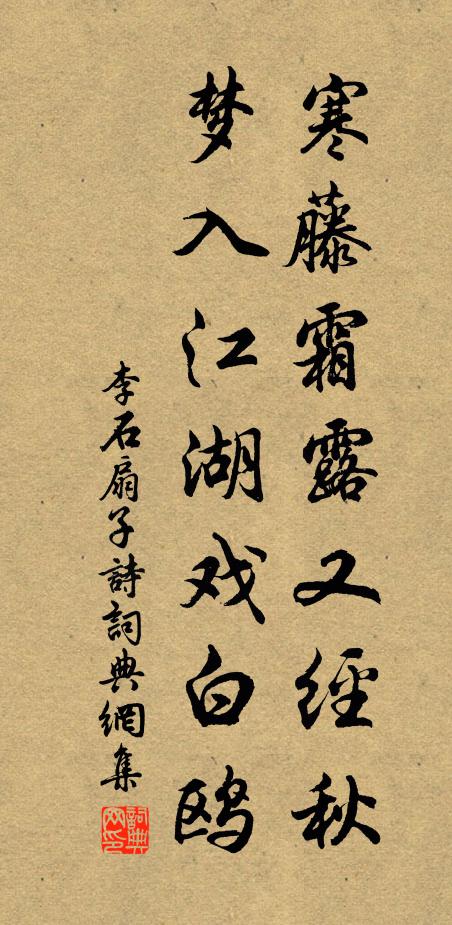 寒藤霜露又經秋
梦入江湖戏白鸥
李石扇子詩詞典網集
詞典网印